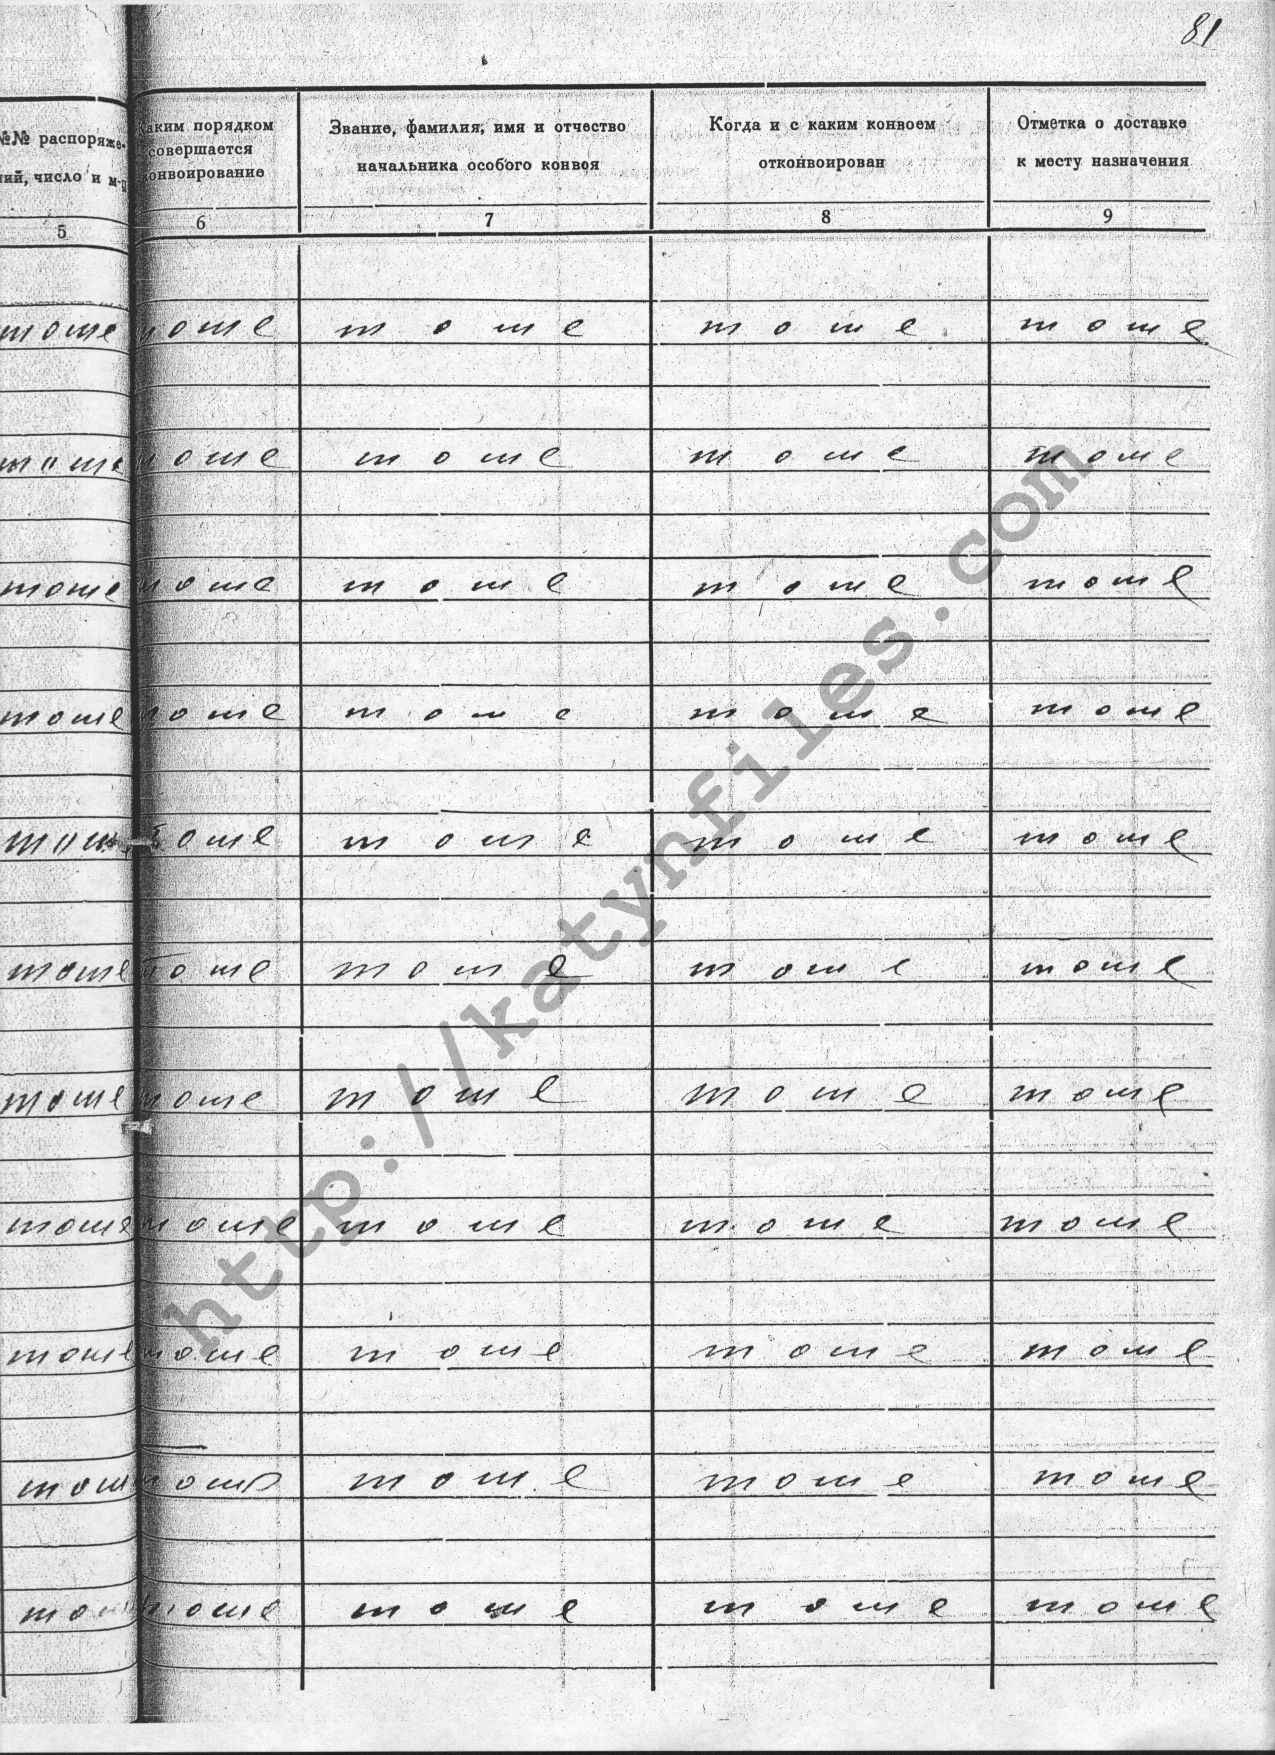 81
№№ распоряже-
ний, число и м-ц
5
Каким порядком
совершается
конвоирование
6
Звание, фамилия, имя и отчество
начальника особого конвоя
7
Когда и с каким конвоем
отконвоирован
8
Отметка о доставке
к месту назначения
9
тоже тоже тоже тоже тоже
тоже тоже тоже тоже тоже
тоже тоже тоже тоже тоже
тоже тоже тоже тоже тоже
тоже тоже тоже тоже тоже
тоже тоже тоже тоже тоже
тоже тоже тоже тоже тоже
тоже тоже тоже тоже тоже
тоже тоже тоже тоже тоже
тоже тоже тоже тоже тоже
тоже тоже тоже тоже тоже
http://katynfiles.com